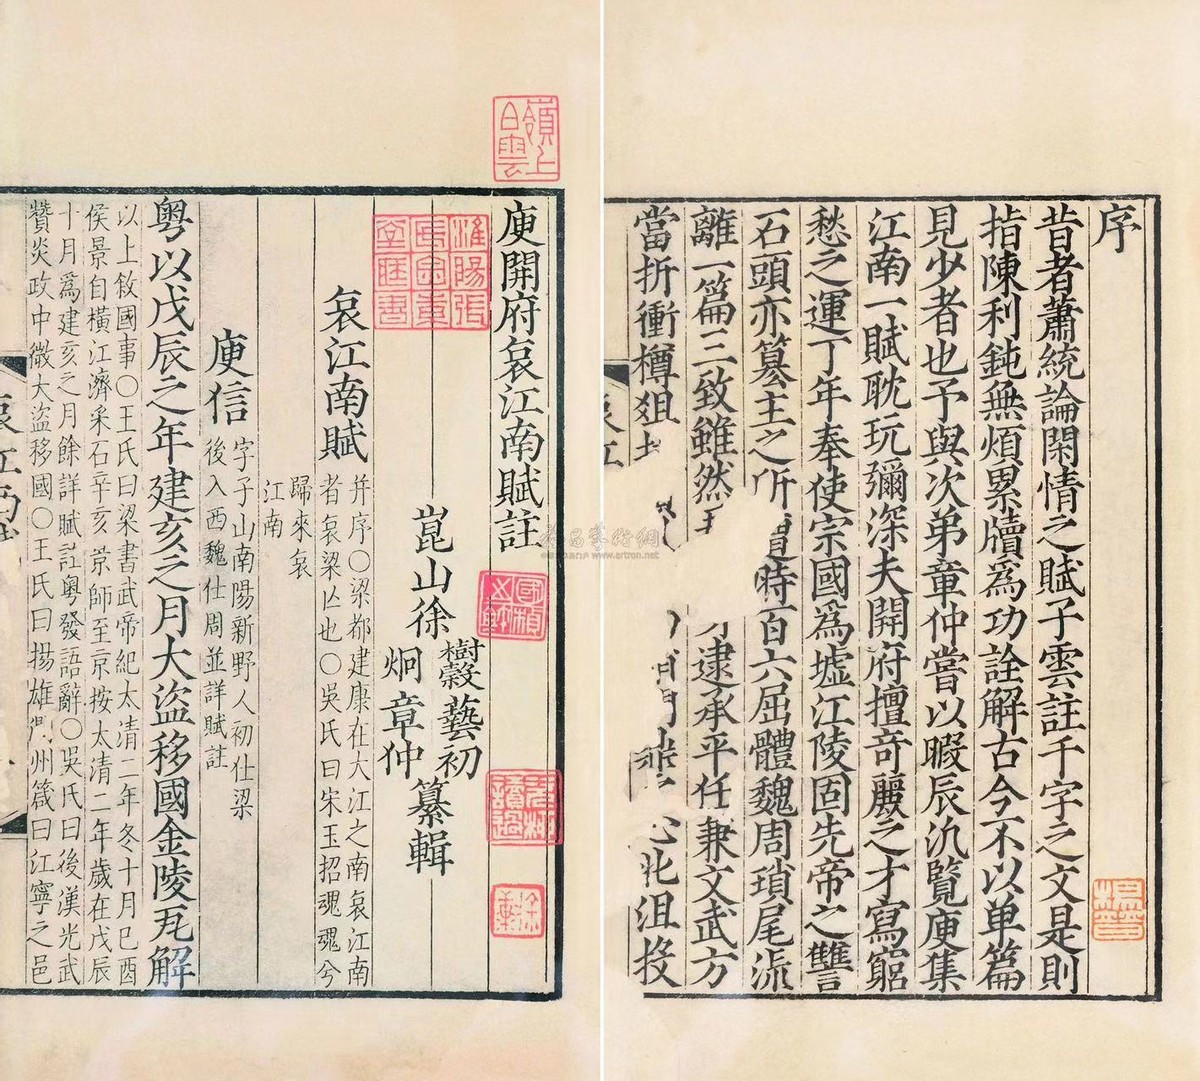 序
昔者蕭統論閑情之賦子雲註千字之文是則
指陳利鈍無煩累牘為功詮解古今不以單篇
見少者也予與次弟章仲嘗以暇辰汎覽庾集
江南一賦耽玩彌深夫開府擅奇麗之才寫窮
愁之運丁年奉使宗國為墟江陵固先帝之讐
石頭亦篡主之所 時百六屈體魏周瑣尾流
離一篇三致雖然 逮承平任兼文武方
當折衝樽俎 北沮投
嶺上白雲
庾開府哀江南賦註
崑山徐樹穀藝初
炯章仲纂輯
哀江南賦
并序○梁都建康在大江之南哀江南
者哀梁亡也○吳氏曰宋玉招魂魂兮
歸來哀
江南
庾信
字子山南陽新野人初仕梁
後入西魏仕周並詳賦註
粵以戊辰之年建亥之月大盜移國金陵瓦解
以上敘國事○王氏曰梁書武帝紀太清二年冬十月己酉
侯景自橫江濟采石辛亥景師至京按太清二年歲在戊辰
十月為建亥之月餘詳賦註粵發語辭○吳氏曰後漢光武
贊炎政中微大盜移國○王氏曰揚雄 州箴曰江寧之邑
www.artron.net